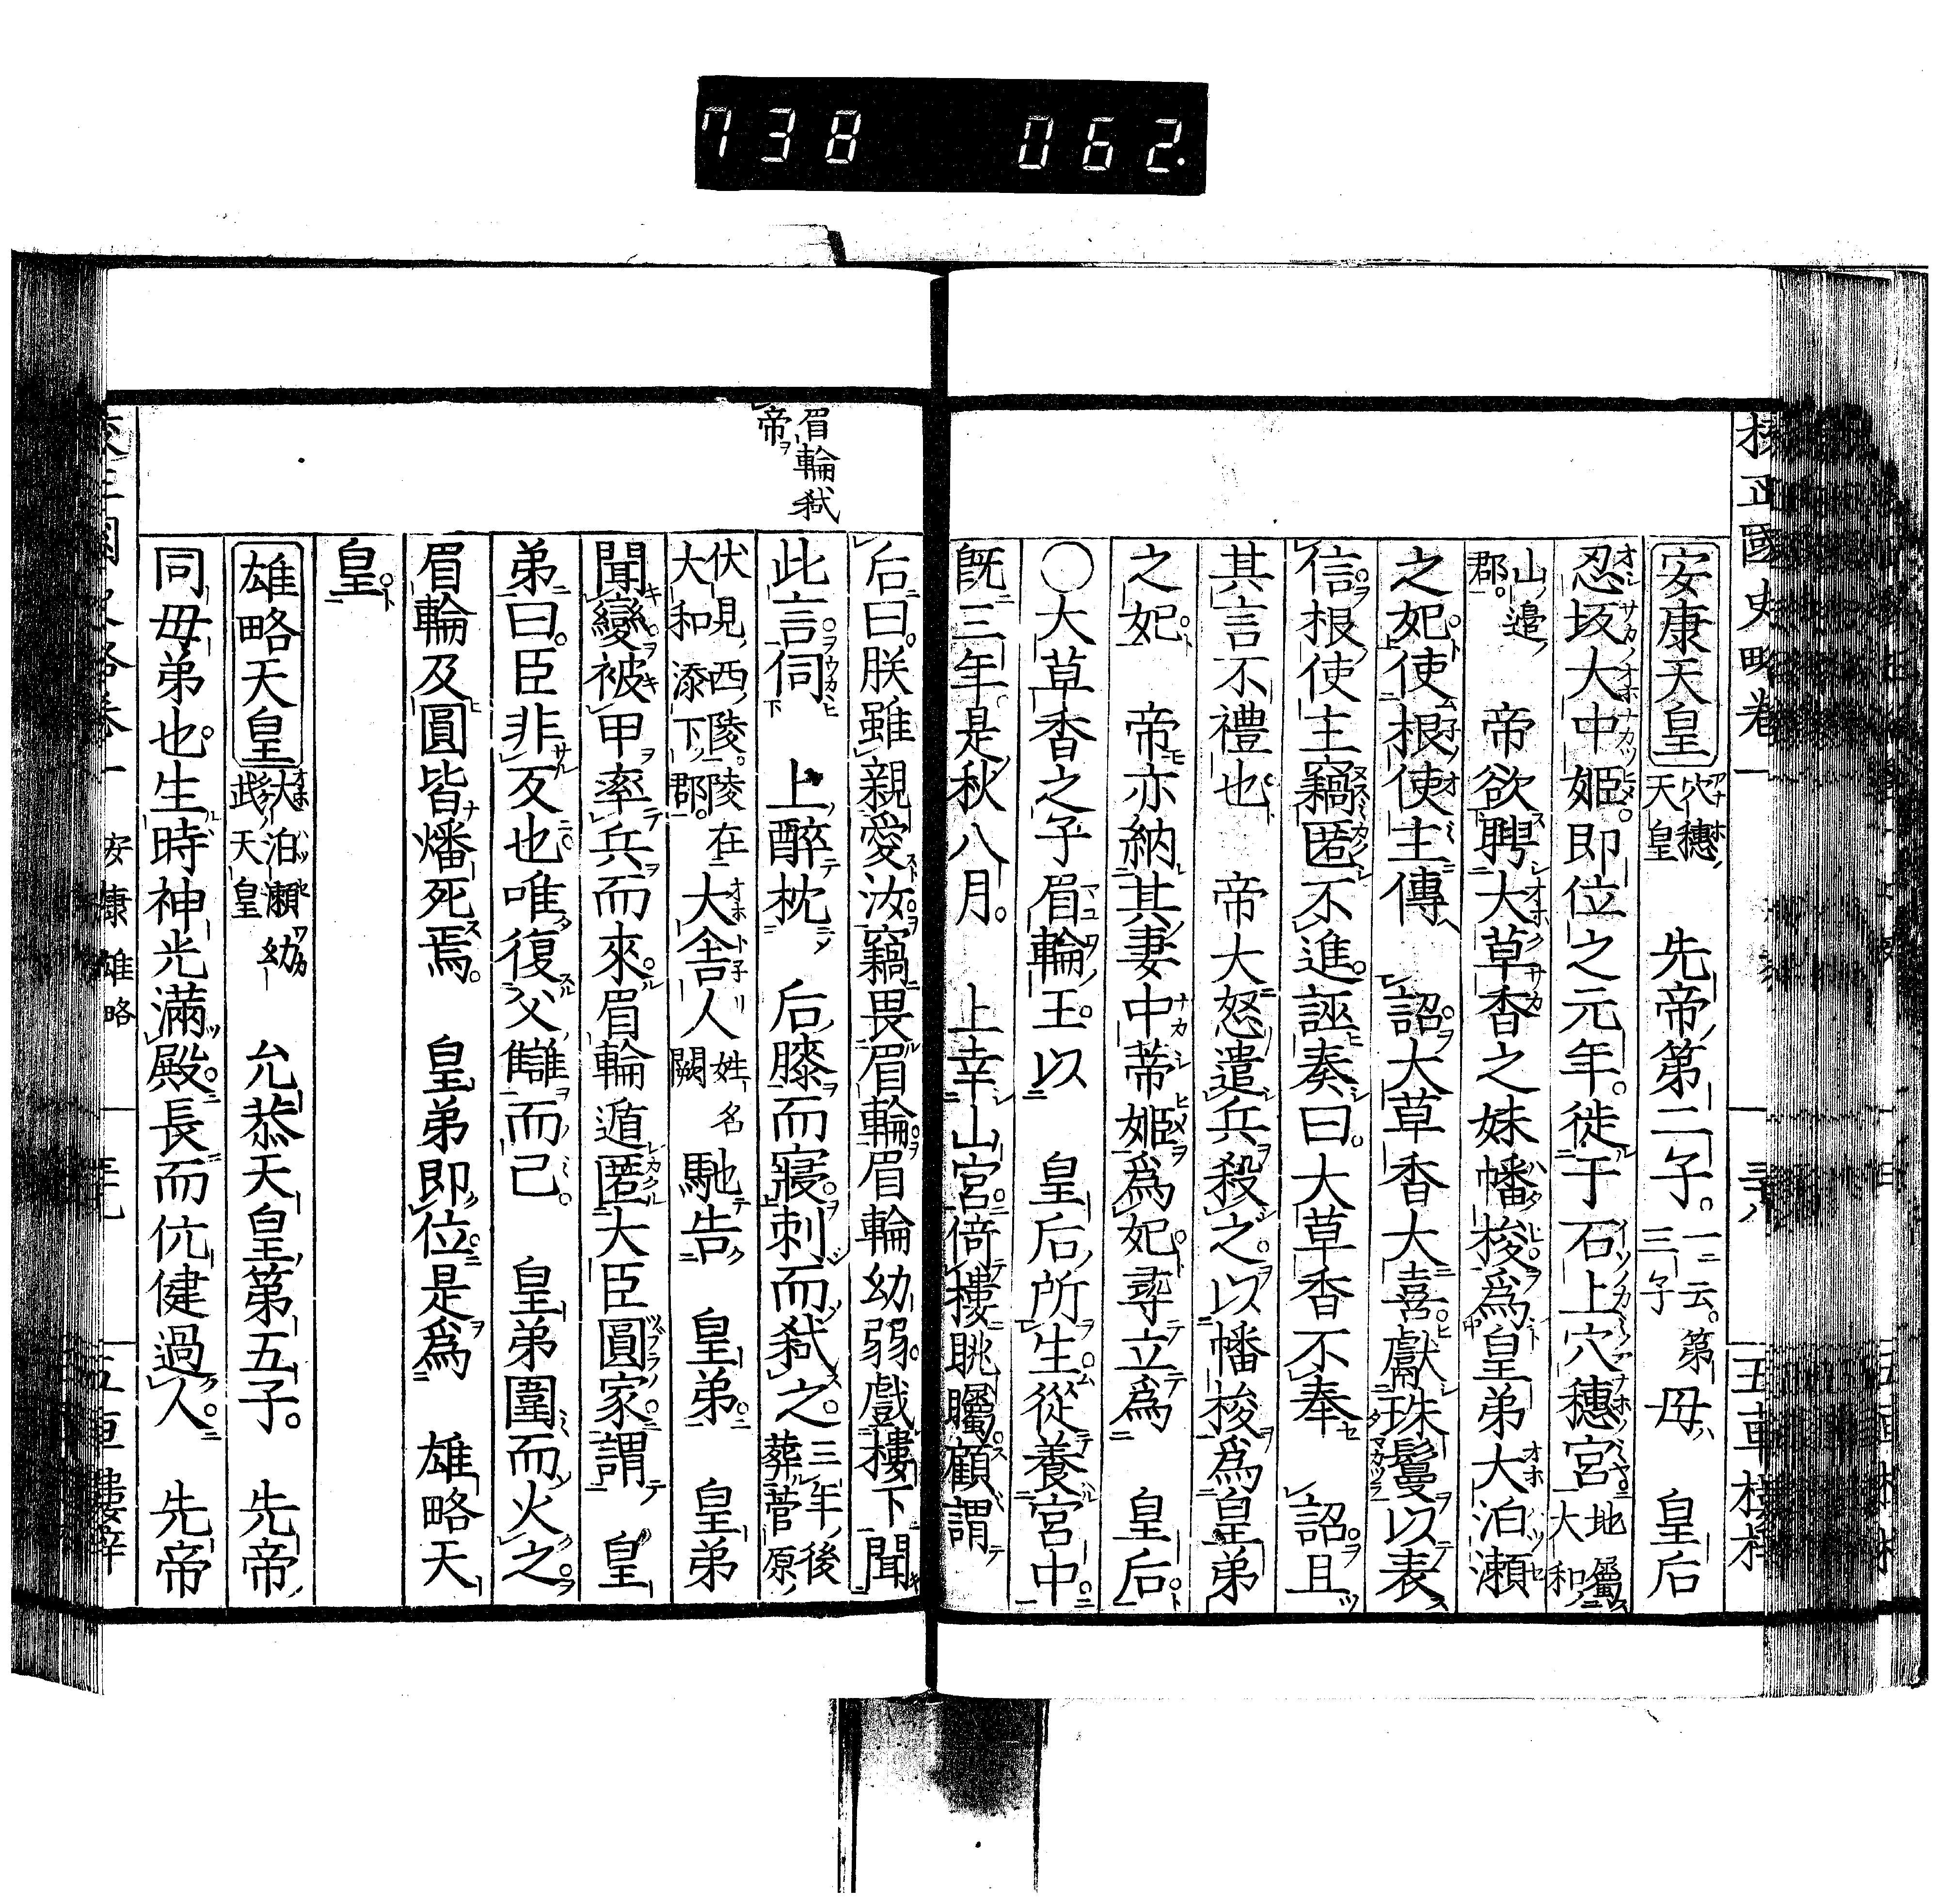 738 062.
校正國史略卷一 三十八 五車樓梓
安康天皇 穴穗天皇 先帝第二子。一云。第三子 母 皇后
忍坂大中姬。即位之元年。徙于石上穴穗宮 地屬大和
山邉郡。 帝欲聘大草香之妹幡梭爲皇弟大泊瀬
之妃使根使主傳 詔大草香大喜獻珠鬘以表
信。根使主竊匿不進。誣奏曰。大草香不奉 詔且
其言不禮也 帝大怒遣兵殺之。以幡梭爲皇弟
之妃 帝亦納其妻中蒂姬爲妃尋立爲 皇后
〇大草香之子眉輪王。以 皇后所生從養宮中
既三年。是秋八月。 上幸山宮倚樓眺矚顧謂
眉輪弑帝
后曰。朕雖親愛汝竊畏眉輪眉輪幼弱戲樓下聞
此言伺 上醉枕 后膝而寢刺而弑之。三年後葬菅原
伏見西陵。陵在大和添下郡。 大舍人姓名闕馳告 皇弟 皇弟
聞變被甲率兵而來。眉輪遁匿大臣圓家謂 皇
弟曰。臣非反也唯復父讎而已 皇弟圍而火之
眉輪及圓皆燔死焉。 皇弟即位是爲 雄略天
皇。
雄略天皇 大泊瀬幼武天皇 允恭天皇第五子。 先帝
同母弟也。生時神光滿殿。長而伉健過人。 先帝
校正國史略卷一 安康 雄略 三十九 五車樓梓